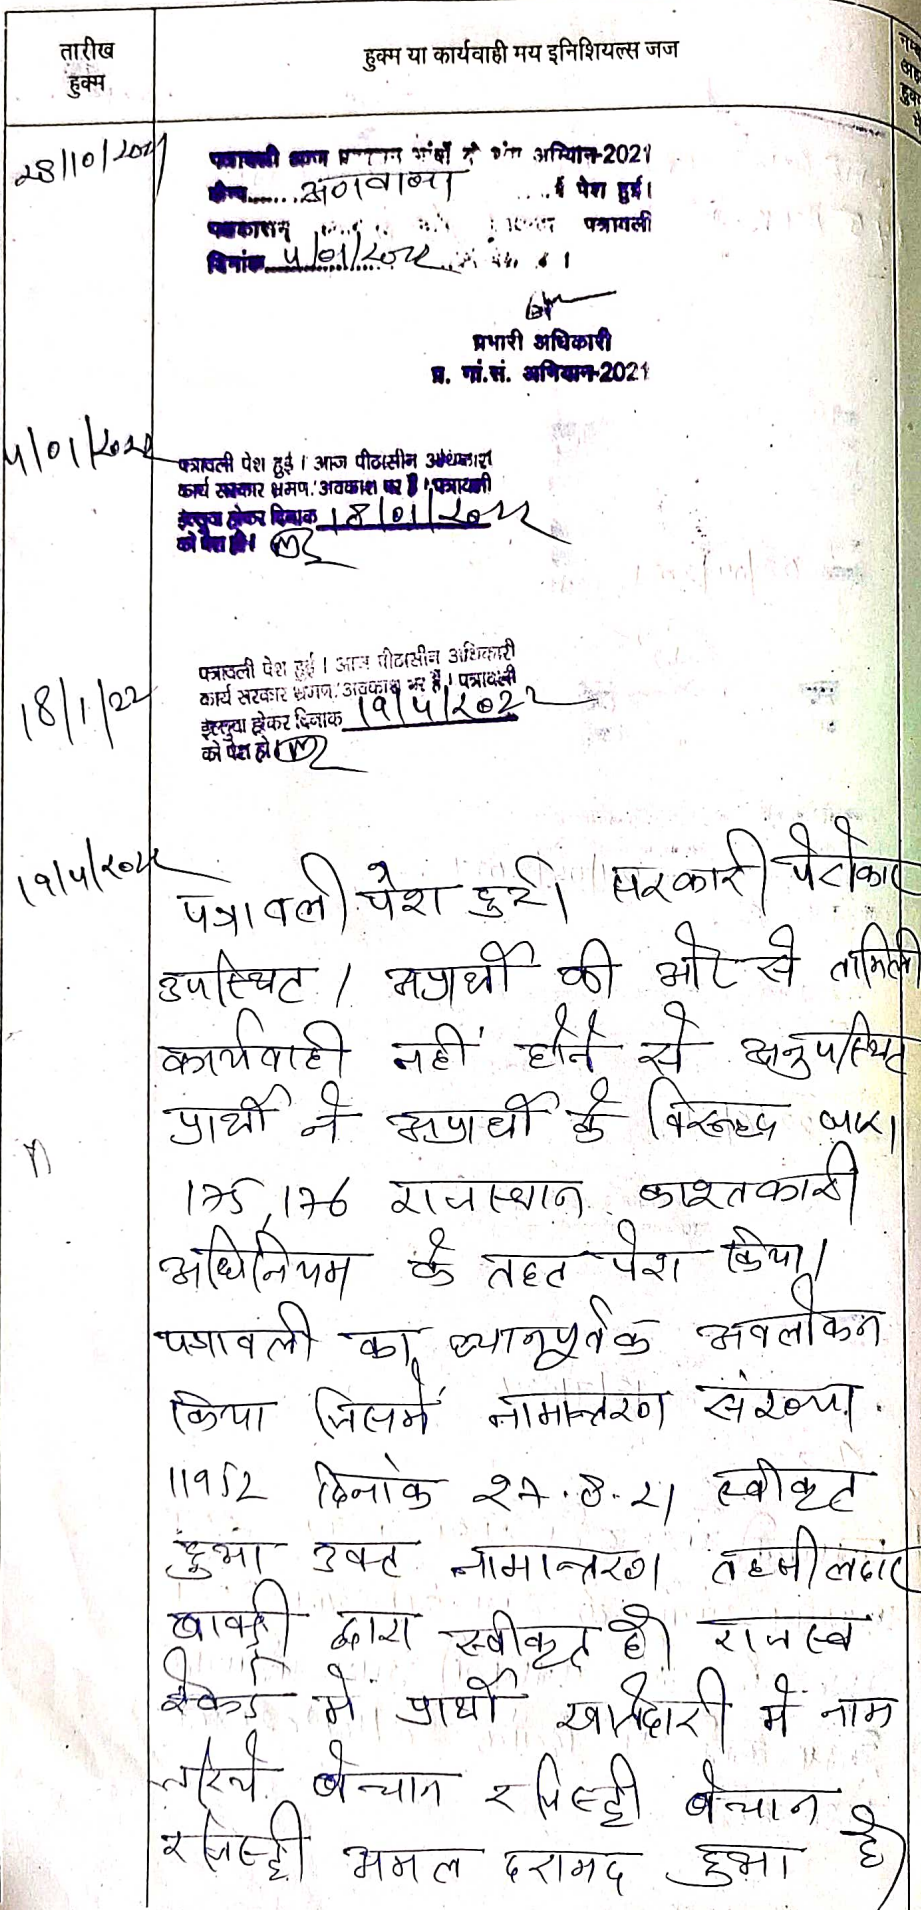 तारीख
हुक्म
हुक्म या कार्यवाही मय इनिशियल्स जज
28/10/2021
पत्रावली आज प्रशासन गांवों के संग अभियान-2021
कैम्प...... ....में पेश हुई।
पक्षकारान् पत्रावली
दिनांक 4/01/2022
प्रभारी अधिकारी
प्र. गां.सं. अभियान-2021
4/01/2022
पत्रावली पेश हुई। आज पीठासीन अधिकारी
कार्य सरकार भ्रमण/अवकाश पर है। पत्रावली
इल्तुवा होकर दिनांक 18/01/2022
को पेश हो।
18/1/22
पत्रावली पेश हुई। आज पीठासीन अधिकारी
कार्य सरकार भ्रमण/अवकाश पर है। पत्रावली
इल्तुवा होकर दिनांक 19/4/2022
को पेश हो।
19/4/2022
पत्रावली पेश हुई। सरकारी पेरोकार
उपस्थित। अप्रार्थी की ओर से तामिली
कार्यवाही नहीं होने से अनुपस्थित
प्रार्थी ने अप्रार्थी के विरूद्ध धारा
175,176 राजस्थान काश्तकारी
अधिनियम के तहत पेश किया।
पत्रावली का ध्यानपूर्वक अवलोकन
किया जिसमें नामान्तरण संख्या
11952 दिनांक 27.8.21 स्वीकृत
हुआ उक्त नामान्तरण तहसीलदार
द्वारा स्वीकृत है। राजस्व
रेकर्ड में प्रार्थी खातेदारी में नाम
जरिये बेचान रजिस्ट्री बेचान
रजिस्ट्री अमल दरामद हुआ है